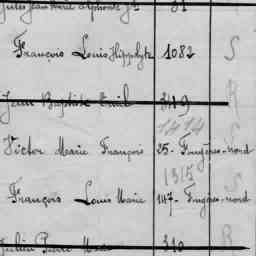 Jules Jean Marie Alphonse 31
François Louis Hippolyte 1082 S
Jean Baptiste Emile 349 R
1414
Victor Marie François 25 - Fougères-nord
1315 S
François Louis Marie 147 - Fougères-nord
Julien Pierre Marie 310 R